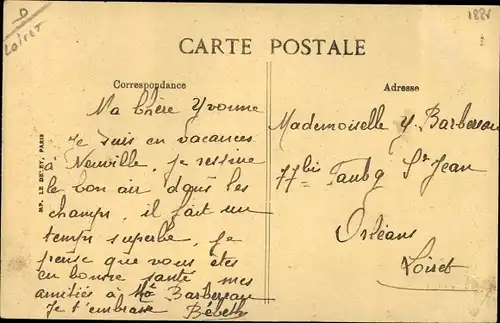 D
Loiret
1881
CARTE POSTALE
Correspondance
Adresse
Ma chère Yvonne
Je suis en vacances
à Neuville, je respire
le bon air dans les
champs, il fait un
temps superbe, je
pense que vous êtes
en bonne santé mes
amitiés à Barberon
Je t'embrasse Bébeth
Mademoiselle Y. Barberon
77bis Faubg St Jean
Orléans
Loiret
MP. LE DELEY, PARIS